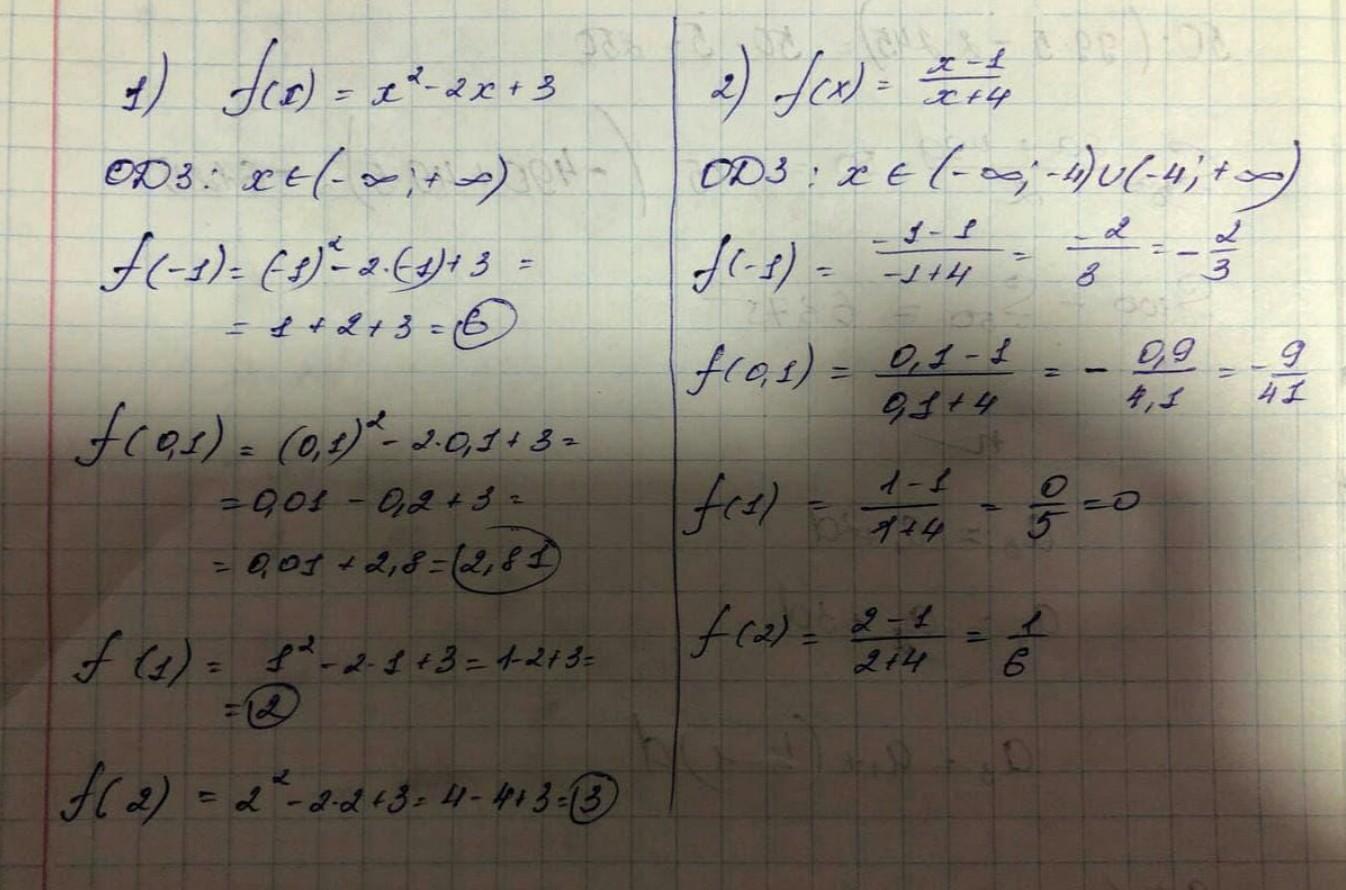 1) f(x) = x² - 2x + 3
ОДЗ: x ∈ (-∞; +∞)
f(-1) = (-1)² - 2·(-1) + 3 =
= 1 + 2 + 3 = 6
f(0,1) = (0,1)² - 2·0,1 + 3 =
= 0,01 - 0,2 + 3 =
= 0,01 + 2,8 = 2,81
f(1) = 1² - 2·1 + 3 = 1-2+3 =
= 2
f(2) = 2² - 2·2 + 3 = 4 - 4 + 3 = 3
2) f(x) = (x-1)/(x+4)
ОДЗ: x ∈ (-∞; -4) ∪ (-4; +∞)
f(-1) = (-1-1)/(-1+4) = (-2)/3 = -2/3
f(0,1) = (0,1-1)/(0,1+4) = -0,9/4,1 = -9/41
f(1) = (1-1)/(1+4) = 0/5 = 0
f(2) = (2-1)/(2+4) = 1/6